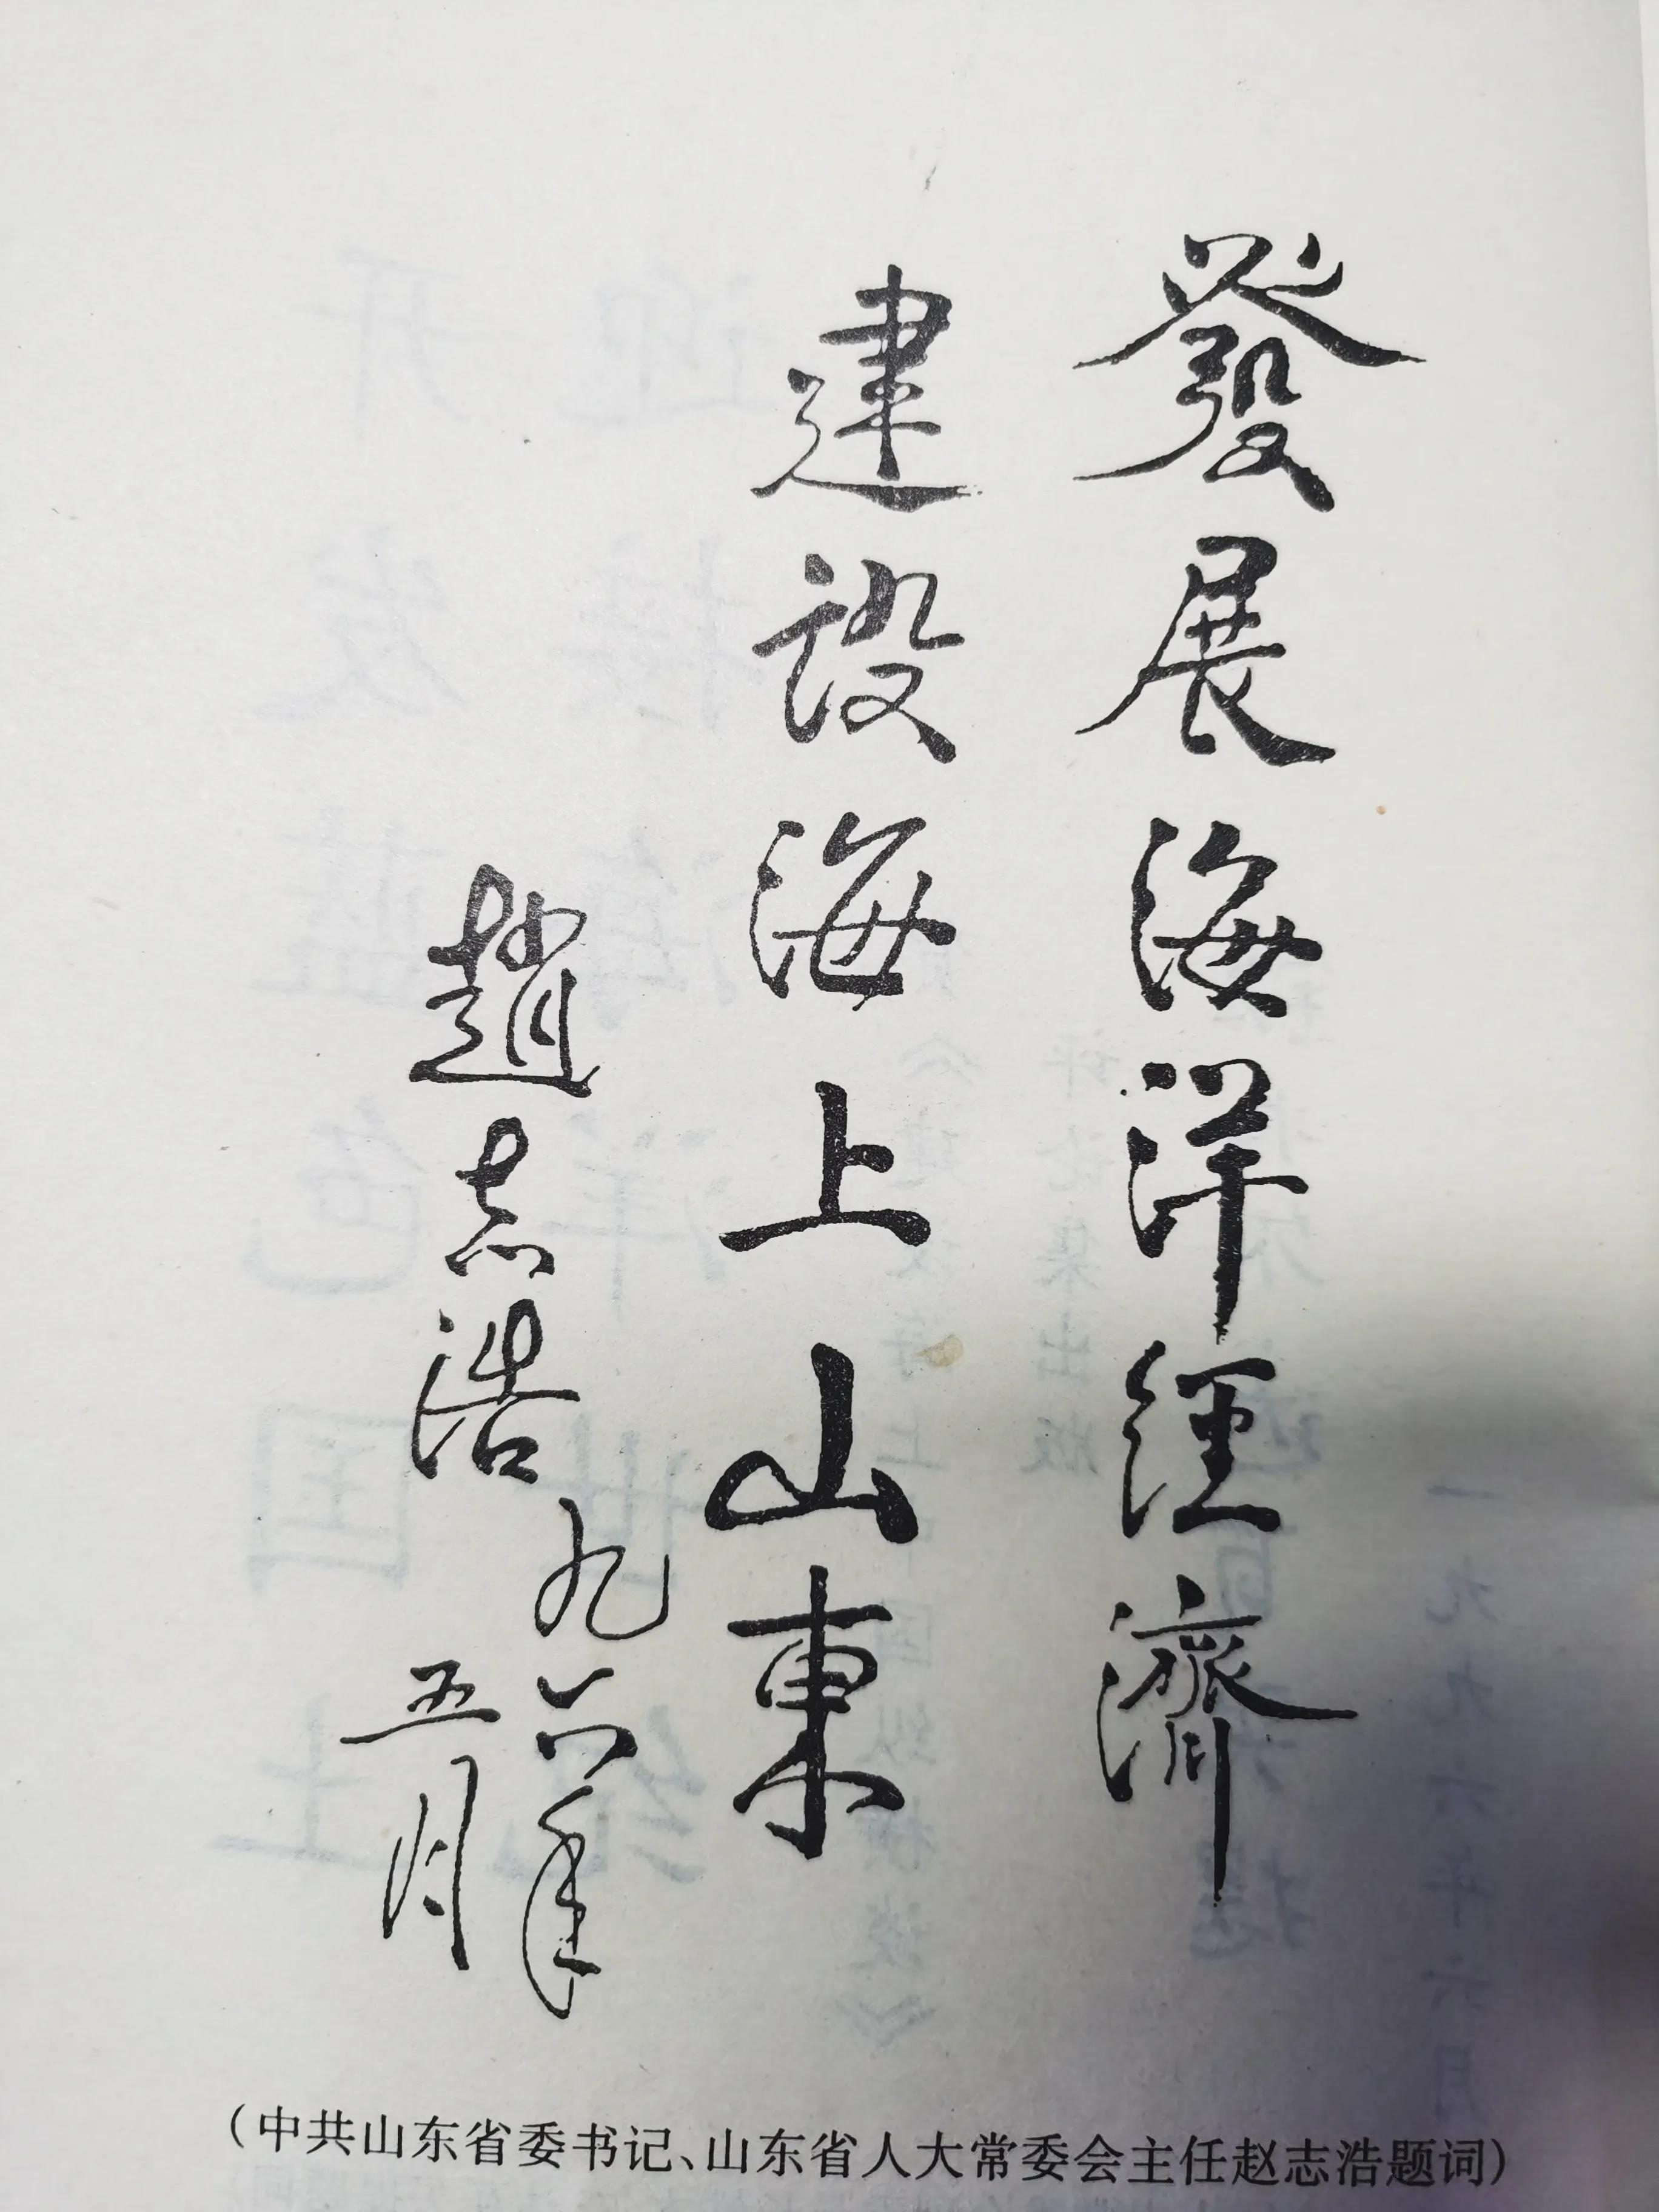 發展海洋經濟
建設海上山東
趙志浩
九六年
五月
(中共山东省委书记、山东省人大常委会主任赵志浩题词)